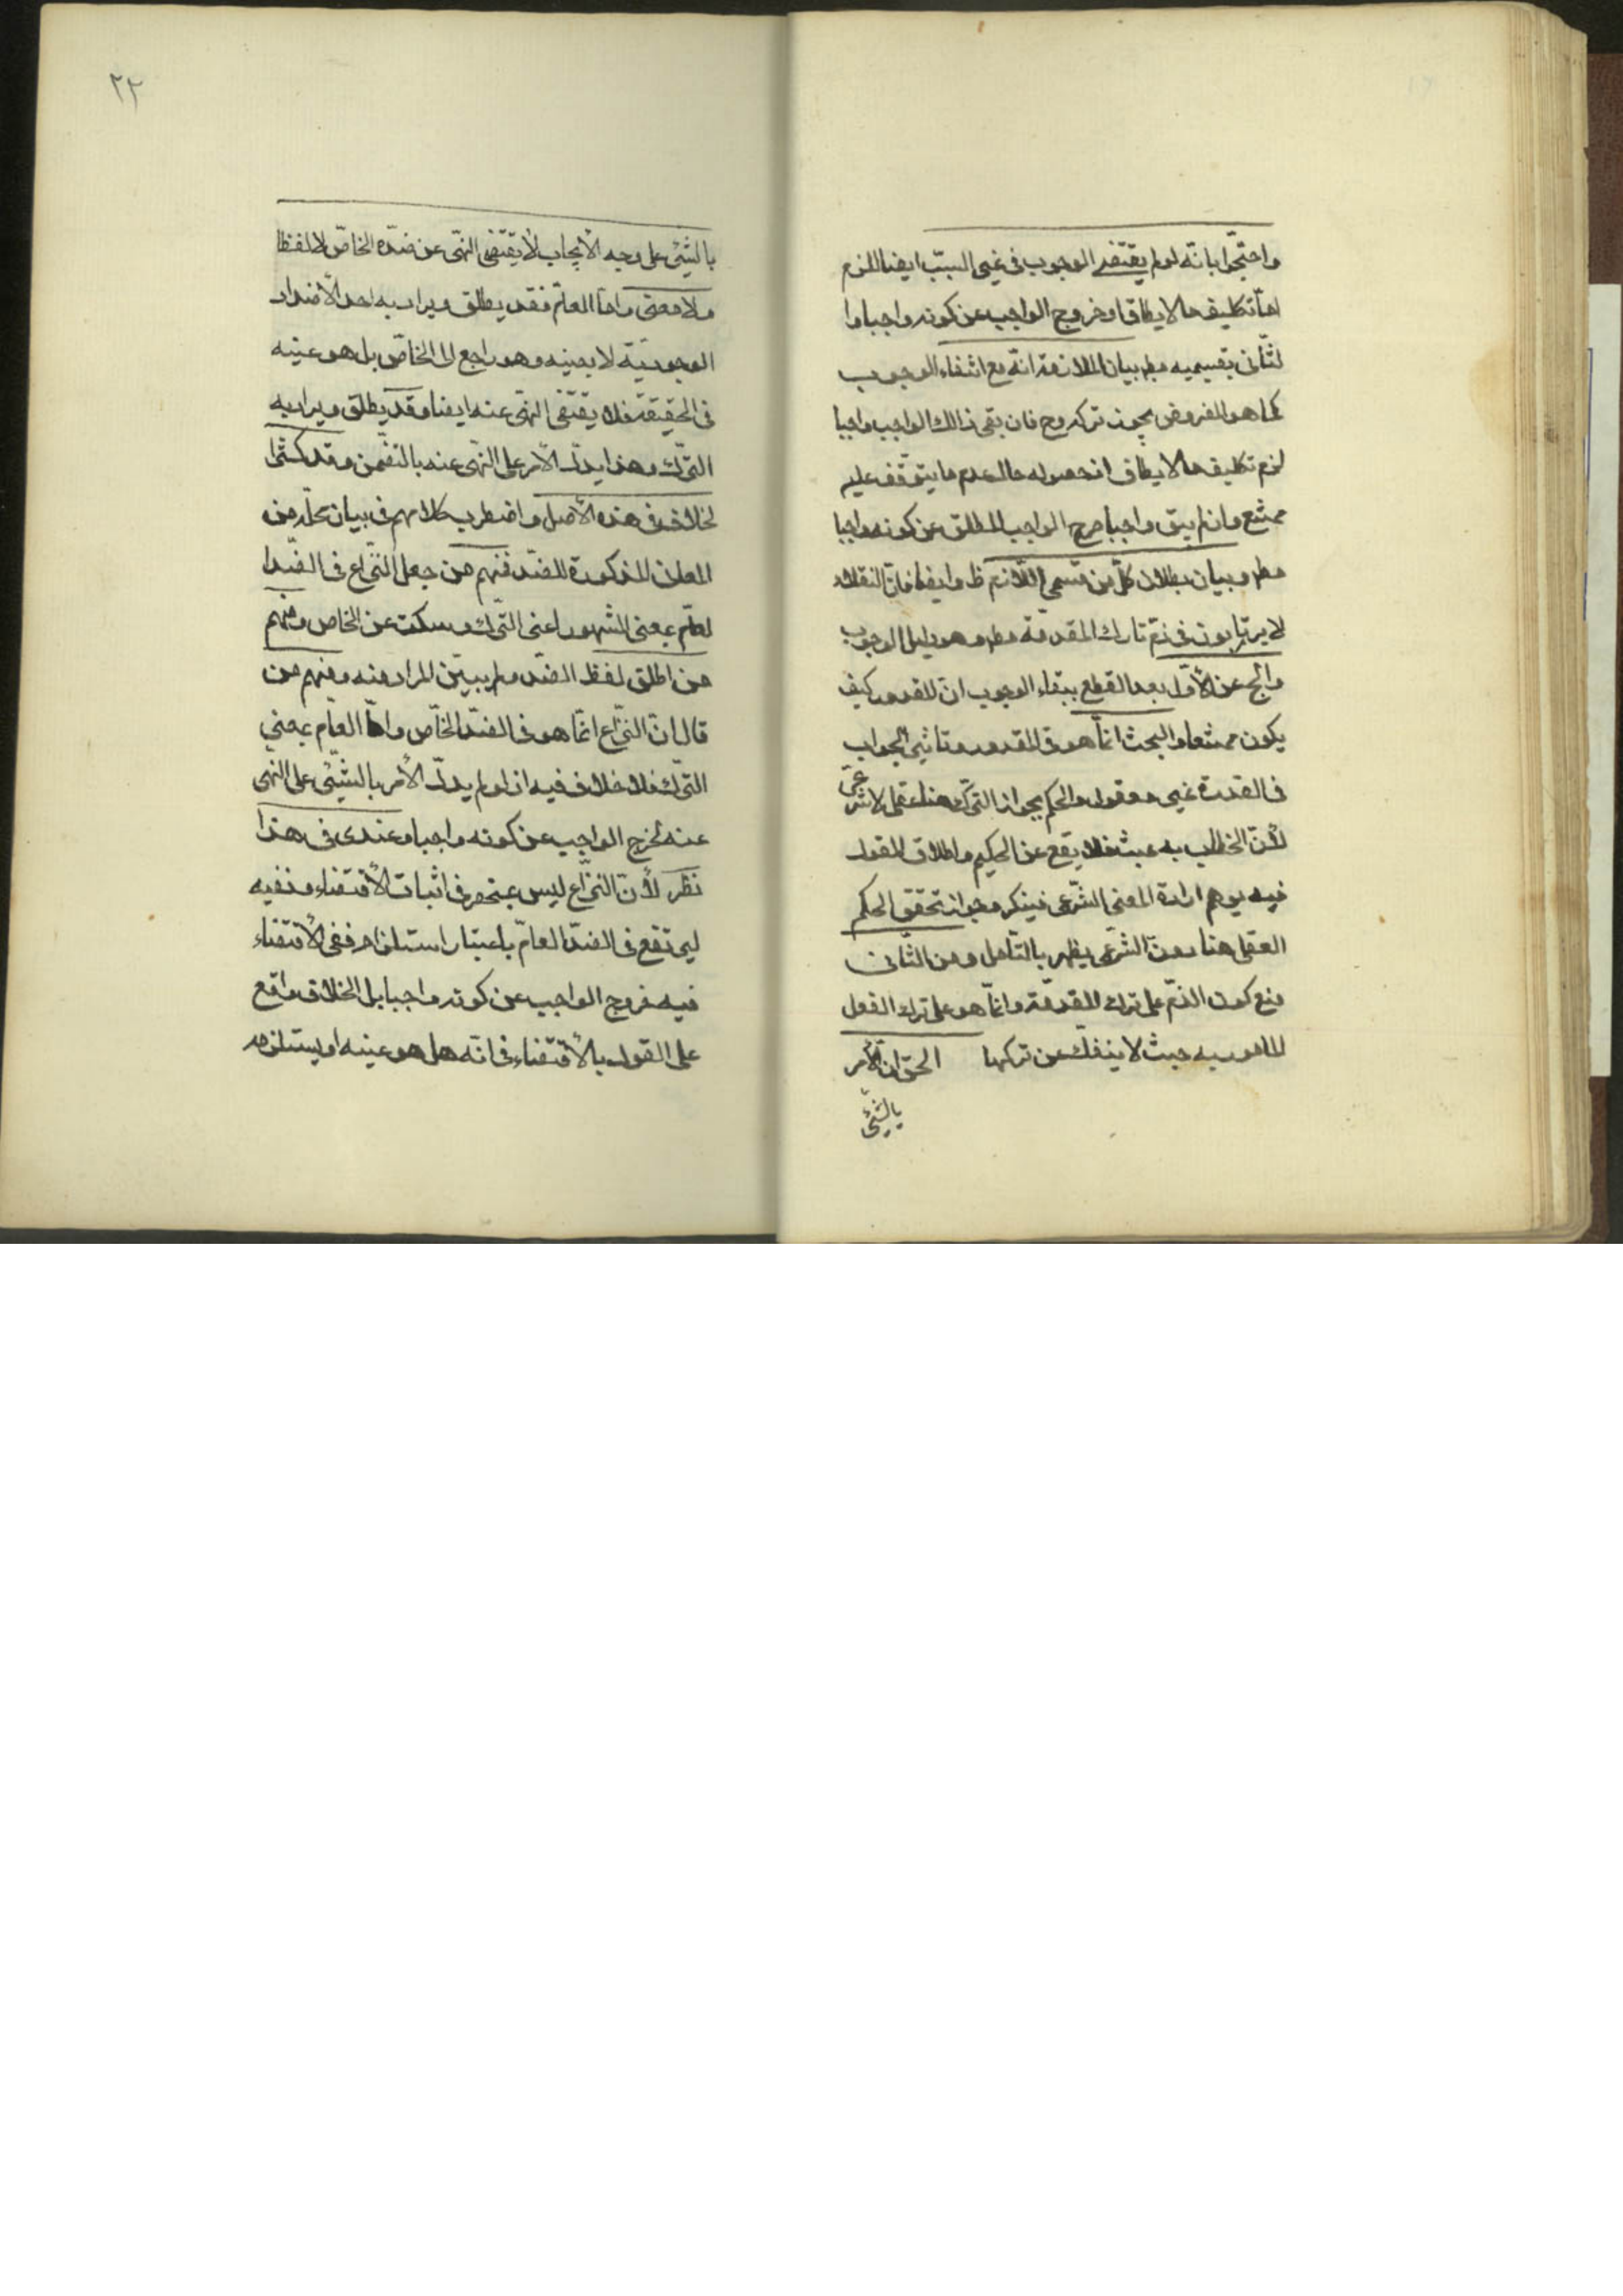 واحتجّوا بانّه لو لم يقتض الوجوب فى غير السبب ايضا للزم
امّا تكليف ما لا يطاق او خروج الواجب عن كونه واجبا وا
لثّانى بقسميه بط بيان الملازمة انّه مع انتفاء الوجوب
كما هو المفروض يجوز تركه وح فان بقى ذالك الواجب واجبا
لزم تكليف ما لا يطاق اذ حصوله حال عدم ما يتوقّف عليه
ممتنع وان لم يبق واجبا خرج الواجب المطلق عن كونه واجبا
مط وبيان بطلان كلّ من قسمى اللّازم ظ وايضا فانّ العقلاء
لا يرتابون فى ذمّ تارك المقدمة مط وهو دليل الوجوب
والجـ عن الأوّل بعد القطع ببقاء الوجوب انّ المقدور كيف
يكون ممتنعا والبحث انّما هو فى المقدور وتاثير الايجاب
فى القدرة غير معقول والحكم بجواز التّرك هنا عقلى لا شرعىّ
لأنّ الخطاب به عبث فلا يقع عن الحكيم واطلاق القول
فيه يوهم ارادة المعنى الشّرعى فينكر وجواز تحقق الحكم
العقلى هنا دون الشّرعى يظهر بالتّامل وعن الثّانى
منع كون الذّم على ترك المقدّمة وانّما هو على ترك الفعل
المامور به حيث لا ينفكّ عن تركها الحقّ انّ الأمر
بالشّئ
٢٢
بالشّئ على وجه الأيجاب لا يقتضى النّهى عن ضدّه الخاصّ لا لفظا
ولا معنى وامّا العامّ فقد يطلق ويراد به احد الأضداد
الوجوديّة لا بعينه وهو راجع الى الخاصّ بل هو عينه
فى الحقيقة فلا يقتضى النّهى عنه ايضا وقد يطلق ويراد به
التّرك وهذا يدلّ الأمر على النّهى عنه بالتضّمن وقد كثر ا
لخلاف فى هذه الأصل واضطرب كلامهم فى بيان محلّه من
المعان المذكورة للضدّ فمنهم من جعل النّزاع فى الضّد ا
لعامّ بمعنى المشهور اعنى التّرك وسكت عن الخاص ومنهم
من اطلق لفظ الضدّ ولم يبيّن المراد منه ومنهم من
قال انّ النّزاع انّما هو فى الضدّ الخاصّ وامّا العامّ بمعنى
التّرك فلا خلاف فيه اذ لو لم يدلّ الأمر بالشّيئى على النهى
عنه لخرج الواجب عن كونه واجبا وعندى فى هذا
نظر لأنّ النّزاع ليس بمنحصر فى اثبات الأقتضاء ونفيه
ليرتفع فى الضدّ العامّ باعتبار استلزام نفى الأقتضاء
فيه خروج الواجب عن كونه واجبا بل الخلاف واقع
على القول بالأقتضاء فى انّه هل هو عينه او يستلزمه